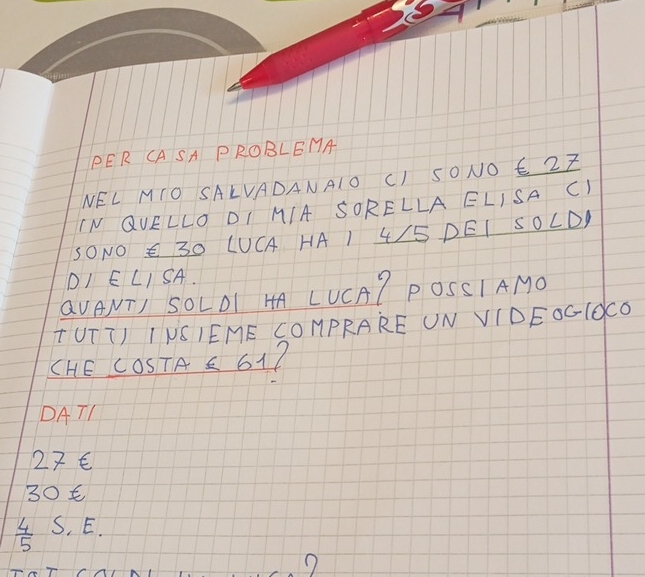 PER CASA PROBLEMA
NEL MIO SALVADANAIO CI SONO € 27
IN QUELLO DI MIA SORELLA ELISA CI
SONO € 30 LUCA HA I 4/5 DEI SOLDI
DI ELISA.
QUANTI SOLDI HA LUCA? POSSIAMO
TUTTI INSIEME COMPRARE UN VIDEOGIOCO
CHE COSTA € 61?
DATI
27 €
30 €
4/5 S. E.